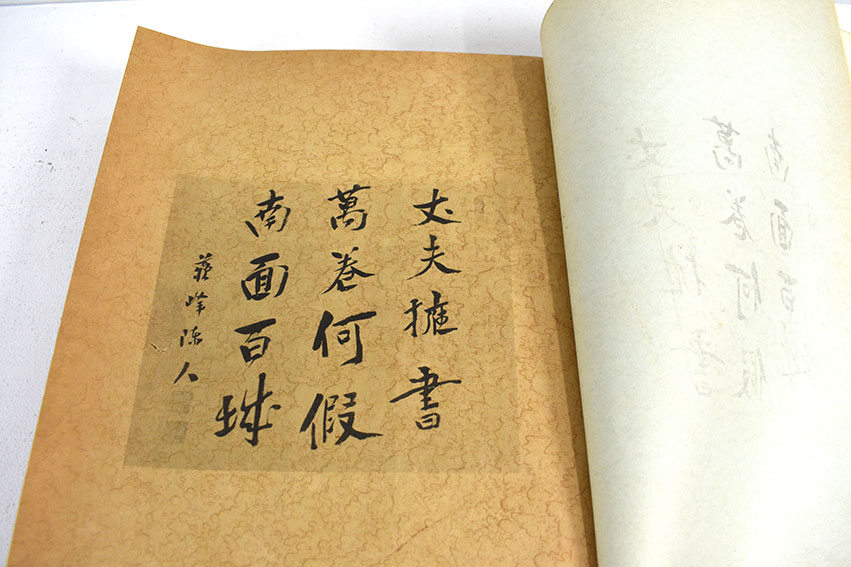 丈夫擁書
萬卷何假
南面百城
蘇峰陳人